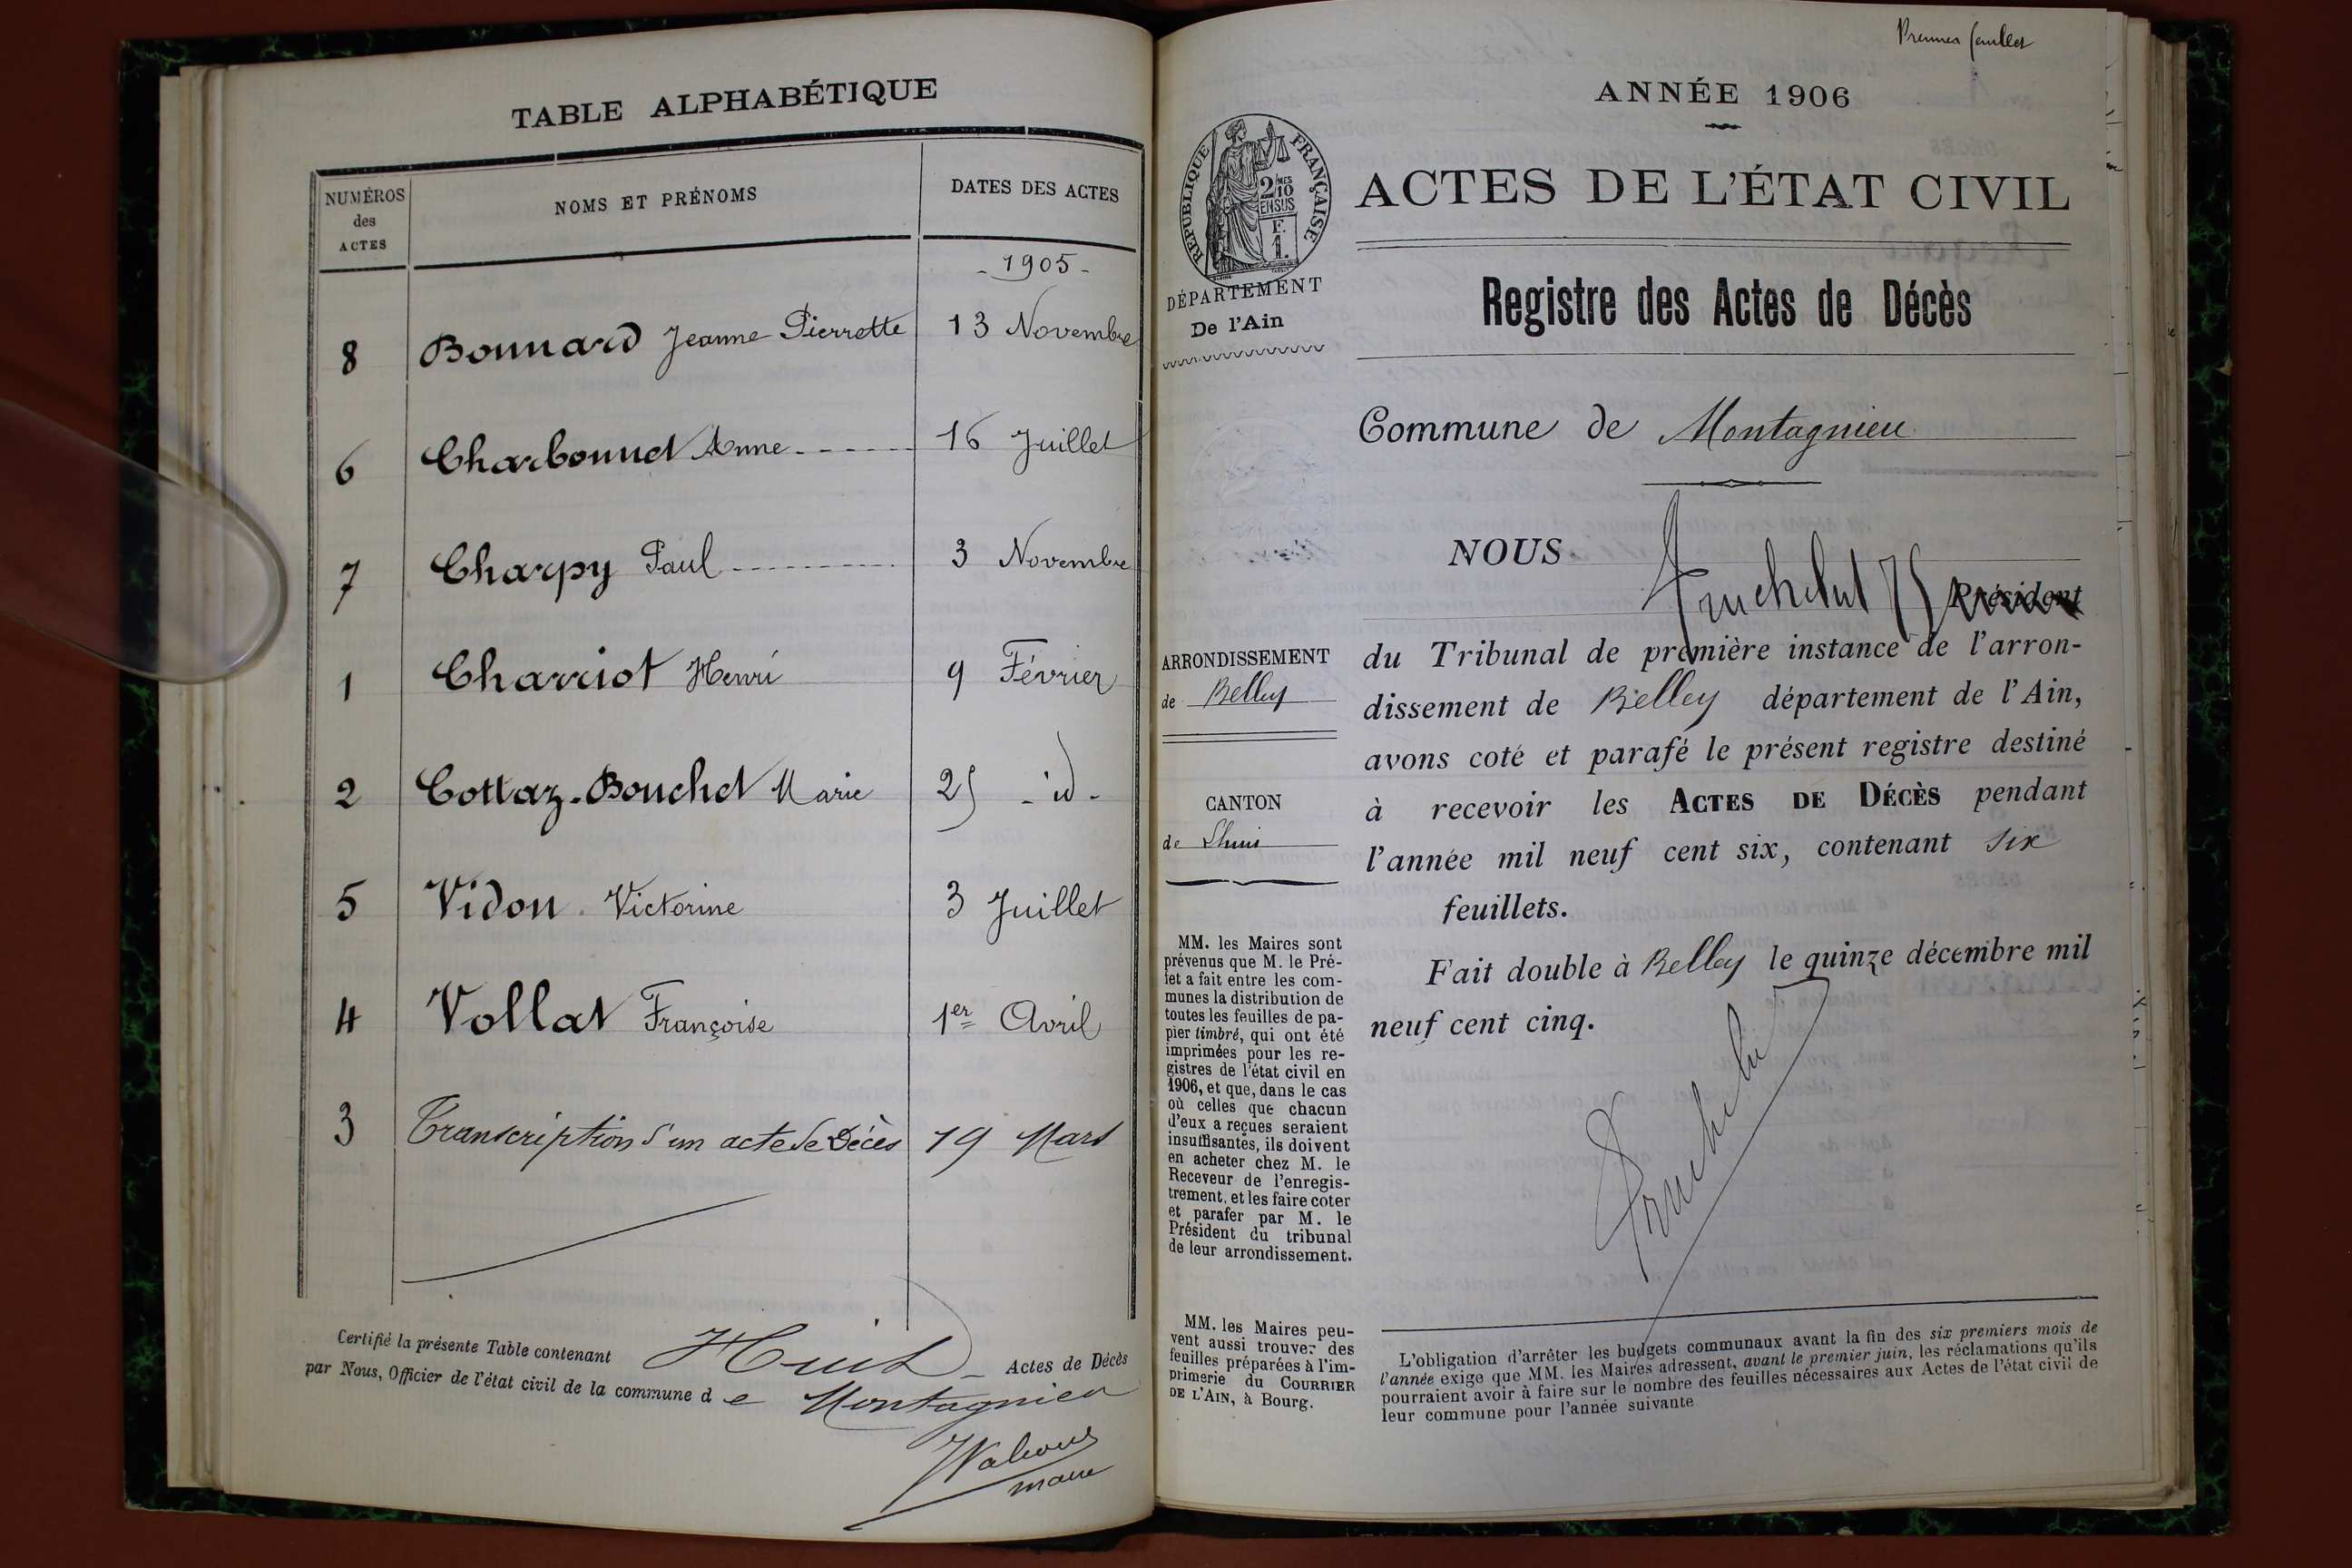 TABLE ALPHABÉTIQUE
NUMÉROS
des
ACTES
NOMS ET PRÉNOMS
DATES DES ACTES
- 1905 -
8 Bonnard Jeanne Pierrette 13 Novembre
6 Charbonnet Anne 16 Juillet
7 Charpy Paul 3 Novembre
1 Charriot Henri 9 Février
2 Cottaz-Bouchet Marie 25 - id -
5 Vidon Victorine 3 Juillet
4 Vollat Françoise 1er Avril
3 Transcription d'un acte de Décès 19 Mars
Certifié la présente Table contenant Huit Actes de Décès
par Nous, Officier de l'état civil de la commune d e Montagnieu
maire
Premier feuillet
ANNÉE 1906
RÉPUBLIQUE FRANÇAISE
2/10
EN SUS
F.
1.
DÉPARTEMENT
De l'Ain
ACTES DE L'ÉTAT CIVIL
Registre des Actes de Décès
Commune de Montagnieu
NOUS
Président
du Tribunal de première instance de l'arron-
dissement de Belley département de l'Ain,
avons coté et parafé le présent registre destiné
à recevoir les ACTES DE DÉCÈS pendant
l'année mil neuf cent six, contenant six
feuillets.
Fait double à Belley le quinze décembre mil
neuf cent cinq.
ARRONDISSEMENT
de Belley
CANTON
de Lhuis
MM. les Maires sont
prévenus que M. le Pré-
fet a fait entre les com-
munes la distribution de
toutes les feuilles de pa-
pier timbré, qui ont été
imprimées pour les re-
gistres de l'état civil en
1906, et que, dans le cas
où celles que chacun
d'eux a reçues seraient
insuffisantes, ils doivent
en acheter chez M. le
Receveur de l'enregis-
trement, et les faire coter
et parafer par M. le
Président du tribunal
de leur arrondissement.
MM. les Maires peu-
vent aussi trouver des
feuilles préparées à l'im-
primerie du COURRIER
DE L'AIN, à Bourg.
L'obligation d'arrêter les budgets communaux avant la fin des six premiers mois de
l'année exige que MM. les Maires adressent, avant le premier juin, les réclamations qu'ils
pourraient avoir à faire sur le nombre des feuilles nécessaires aux Actes de l'état civil de
leur commune pour l'année suivante